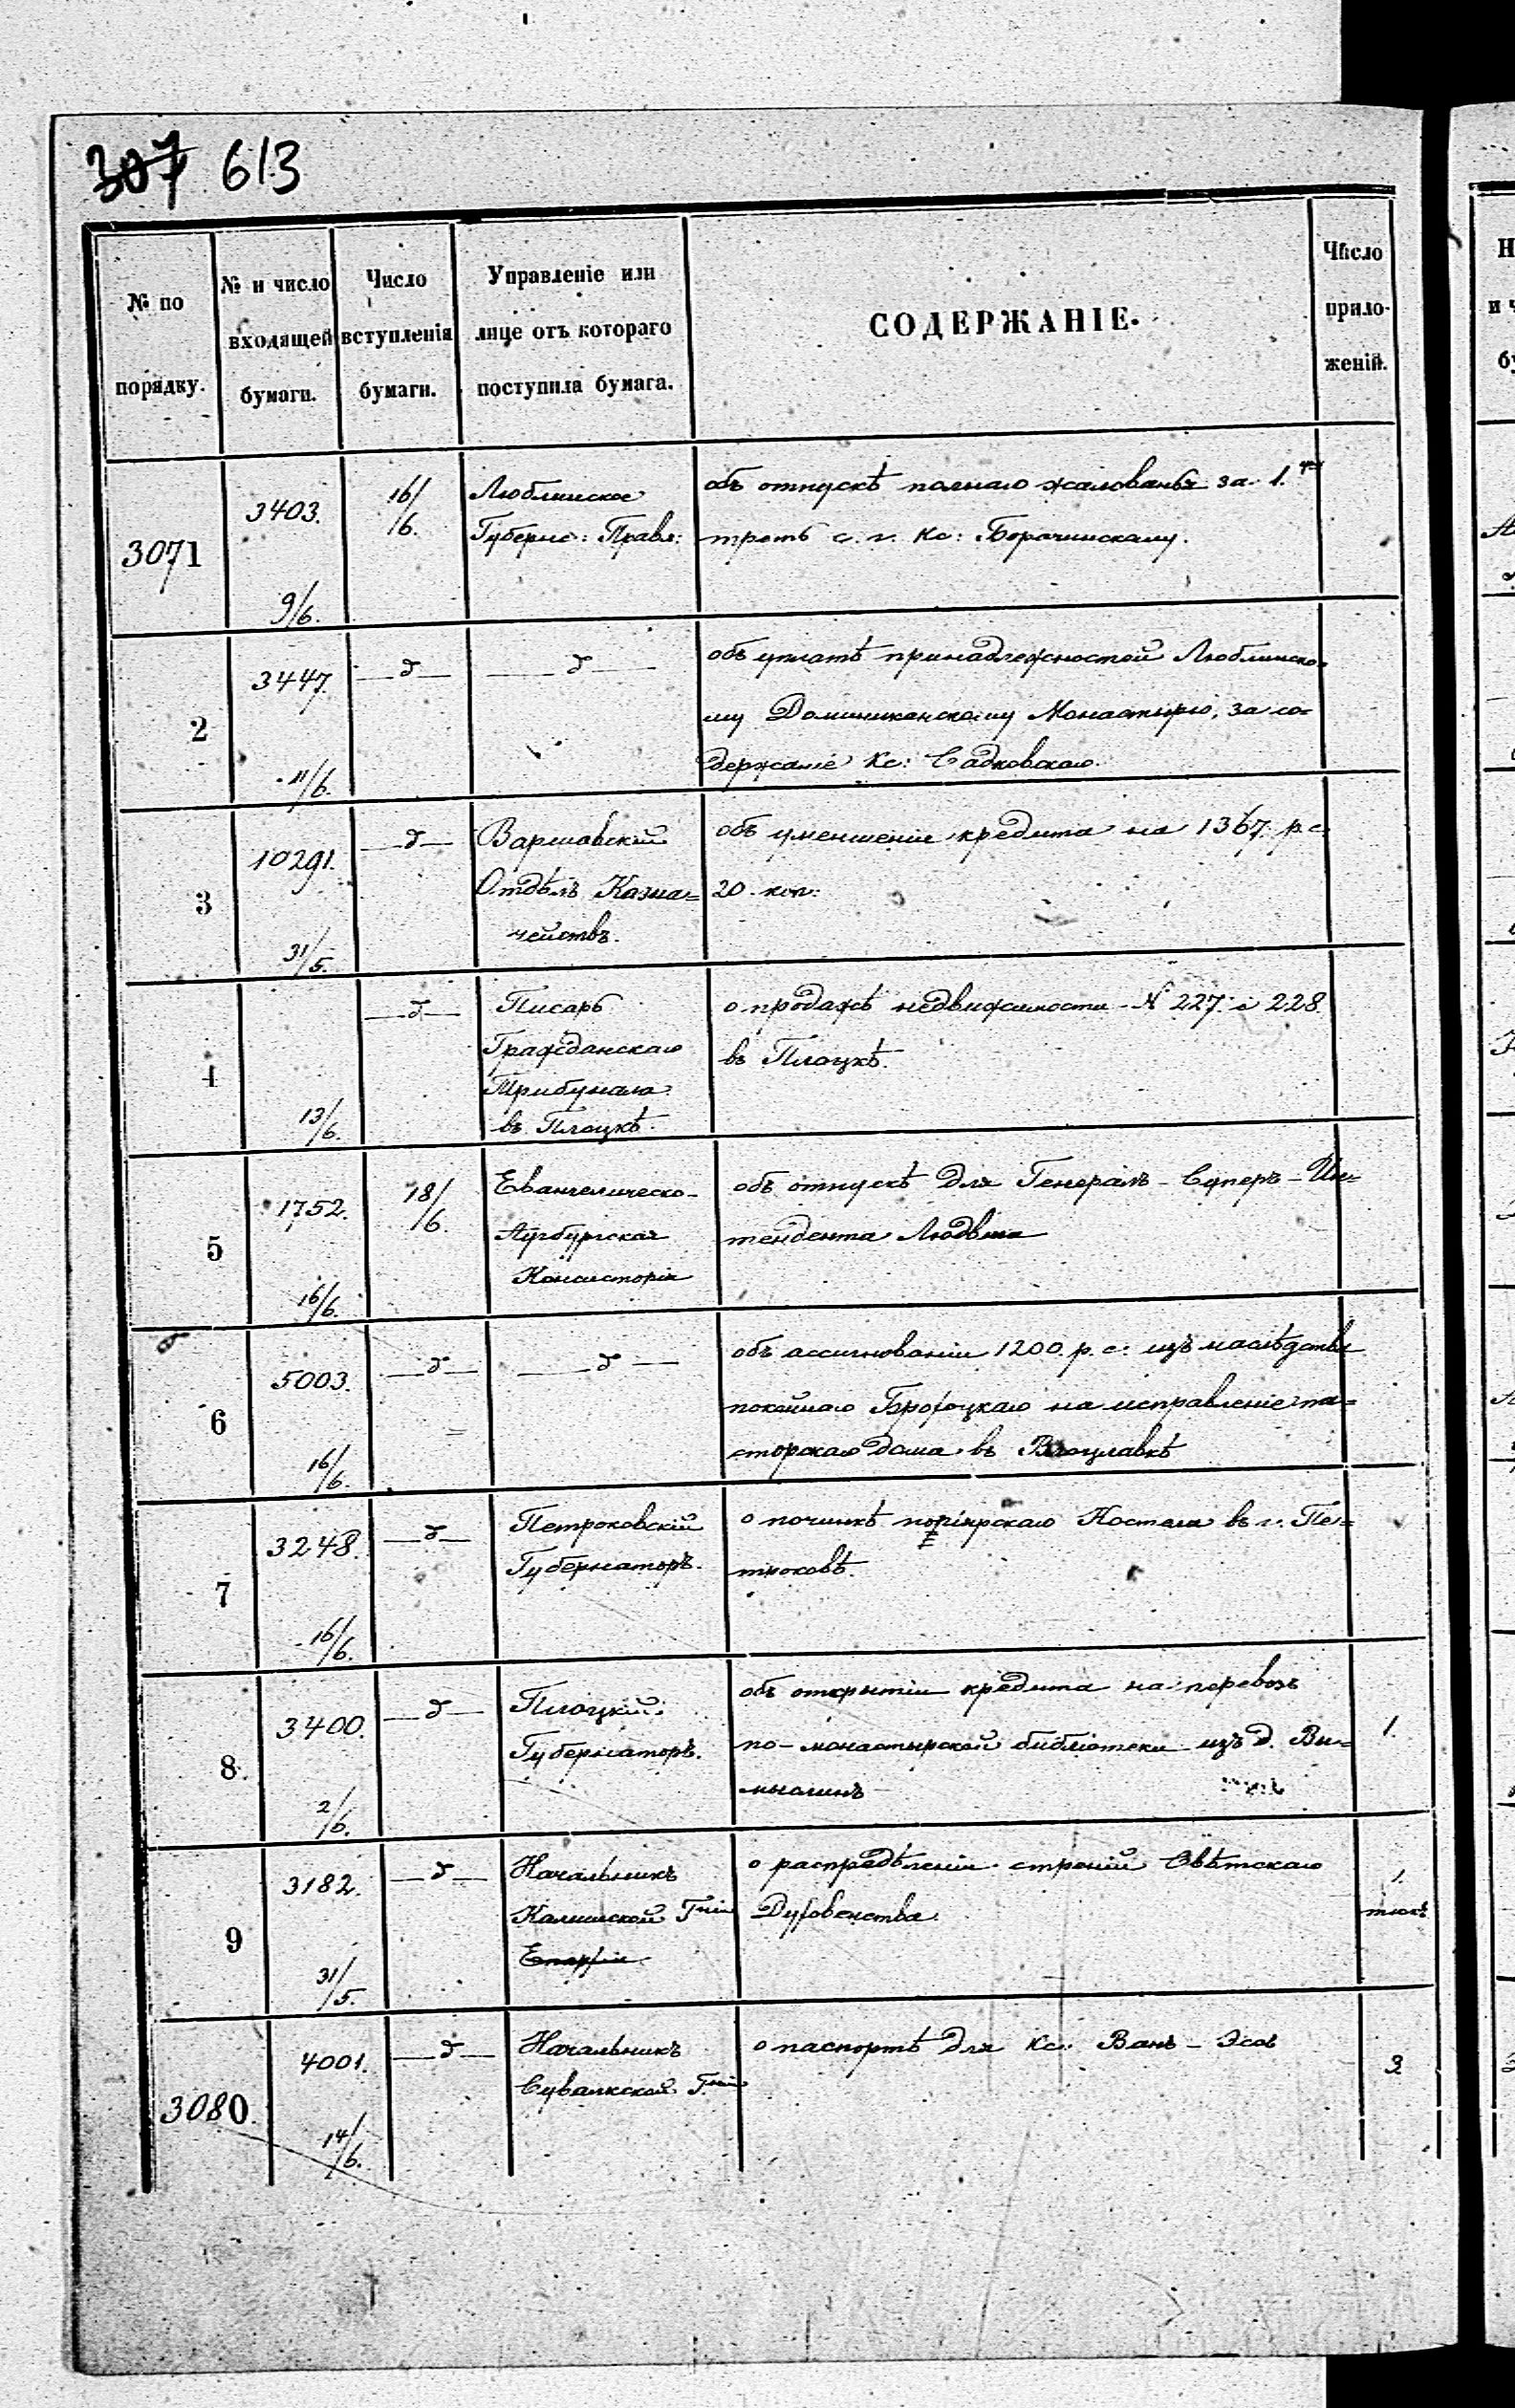 307 613
№ по порядку.
№ и число входящей бумаги.
Число вступленія бумаги.
Управленіе или лице отъ котораго поступила бумага.
СОДЕРЖАНІЕ.
Число приложеній.
3071
3403.
9/6.
16/6.
Люблинское
Губернс: Правл:
объ отпускѣ полнаго жалованья за 1.ю
треть с. г. Кс:
2
3447.
11/6.
—д—
—д—
объ уплатѣ принадлежностей Люблинско-
му Доминиканскому Монастырю, за со-
держаніе Кс: Садковскаго.
3
10291.
31/5.
—д—
Варшавскій
Отдѣлъ Казна=
чействъ.
объ уменшеніи кредита на 1367. р. с.
20. коп:
4
13/6.
—д—
Писарь
Гражданскаго
Трибунала
въ Плоцкѣ.
о продажѣ недвижимости N 227. и 228.
въ Плоцкѣ.
5
1752.
16/6.
18/6.
Евангелическо-
Аугсбургская
Консисторія
объ отпускѣ для Генералъ-Суперъ-Ин=
тендента Людвига
6
5003.
16/6.
—д—
—д—
объ ассигнованіи 1200. р. с. изъ наслѣдства
покойнаго на исправленіе па=
сторскаго дома въ Влоцлавкѣ
7
3248.
16/6.
—д—
Петроковскій
Губернаторъ.
о починкѣ Костела въ г. Пе=
троковѣ.
8.
3400.
2/6.
—д—
Плоцкій
Губернаторъ.
объ открытіи кредита на перевозъ
по-монастырской библіотеки изъ д. Вы=
мыслинъ
1.
9
3182.
31/5.
—д—
Начальникъ
Калишской Гніи
Епархіи
о распредѣленіи строній Свѣтскаго
Духовенства.
1.
3080.
4001.
14/6.
—д—
Начальникъ
Сувалкской Гніи
о паспортѣ для Кс: Ванъ-
3